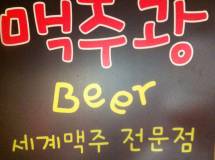 맥주광
Beer
세계맥주 전문점